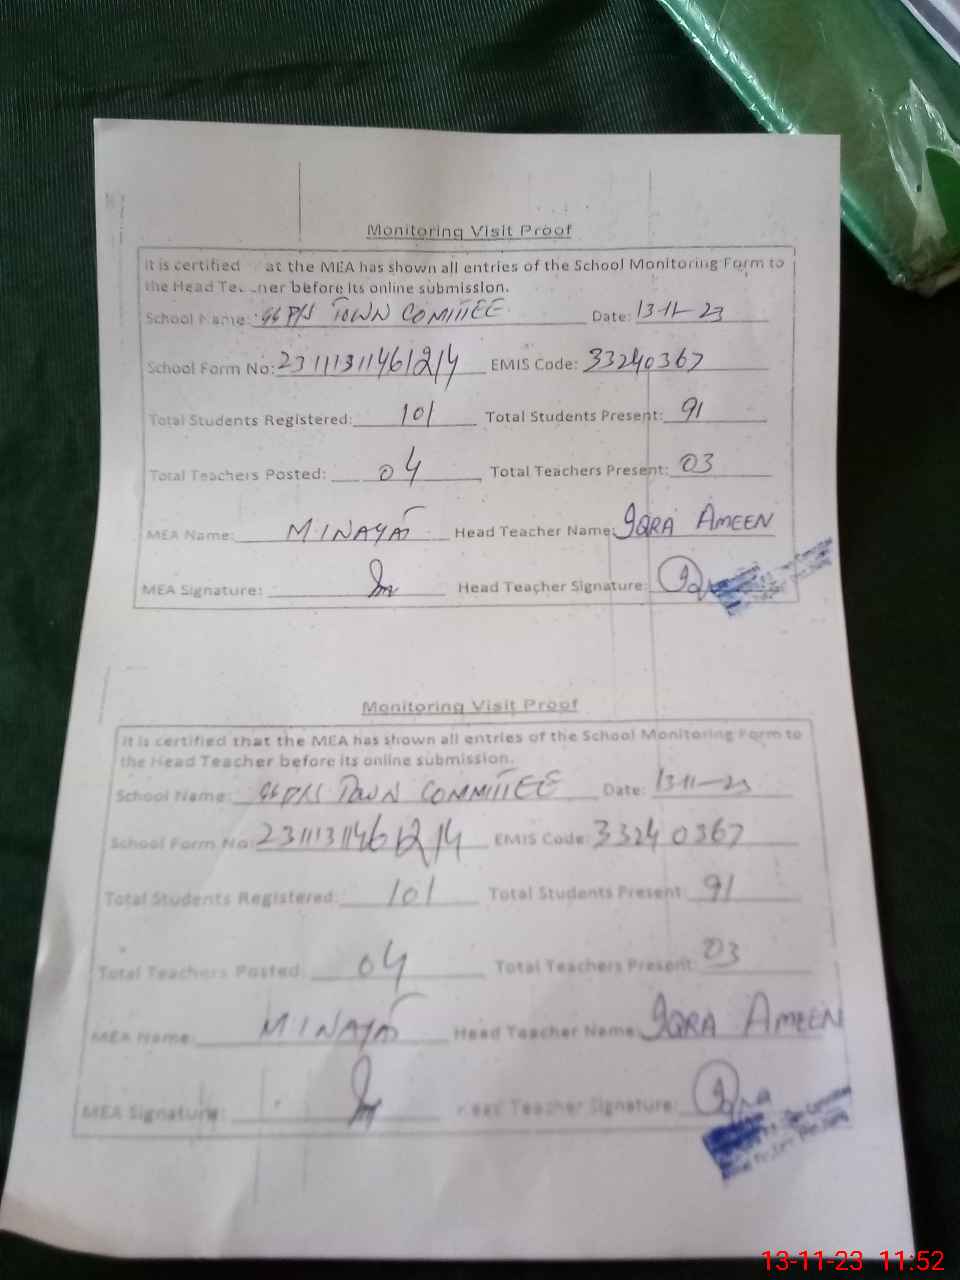 Monitoring Visit Proof
It is certified at the MEA has shown all entries of the School Monitoring Form to
the Head Te ner before its online submission.
School Name: GGP/S TOWN COMITTEE Date: 13-11-23
School Form No: 23111311461214 EMIS Code: 33240367
Total Students Registered: 101 Total Students Present: 91
Total Teachers Posted: 04 Total Teachers Present: 03
MEA Name: M. INAYAT Head Teacher Name: IQRA AMEEN
MEA Signature: Head Teacher Signature:
Monitoring Visit Proof
It is certified that the MEA has shown all entries of the School Monitoring Form to
the Head Teacher before its online submission.
School Name: GGP/S TOWN COMMITTEE Date: 13-11-23
School Form No: 23111311461214 EMIS Code: 33240367
Total Students Registered: 101 Total Students Present: 91
Total Teachers Posted: 04 Total Teachers Present: 03
MEA Name: M INAYAT Head Teacher Name: IQRA AMEEN
MEA Signature: Head Teacher Signature: Iqra
13-11-23 11:52